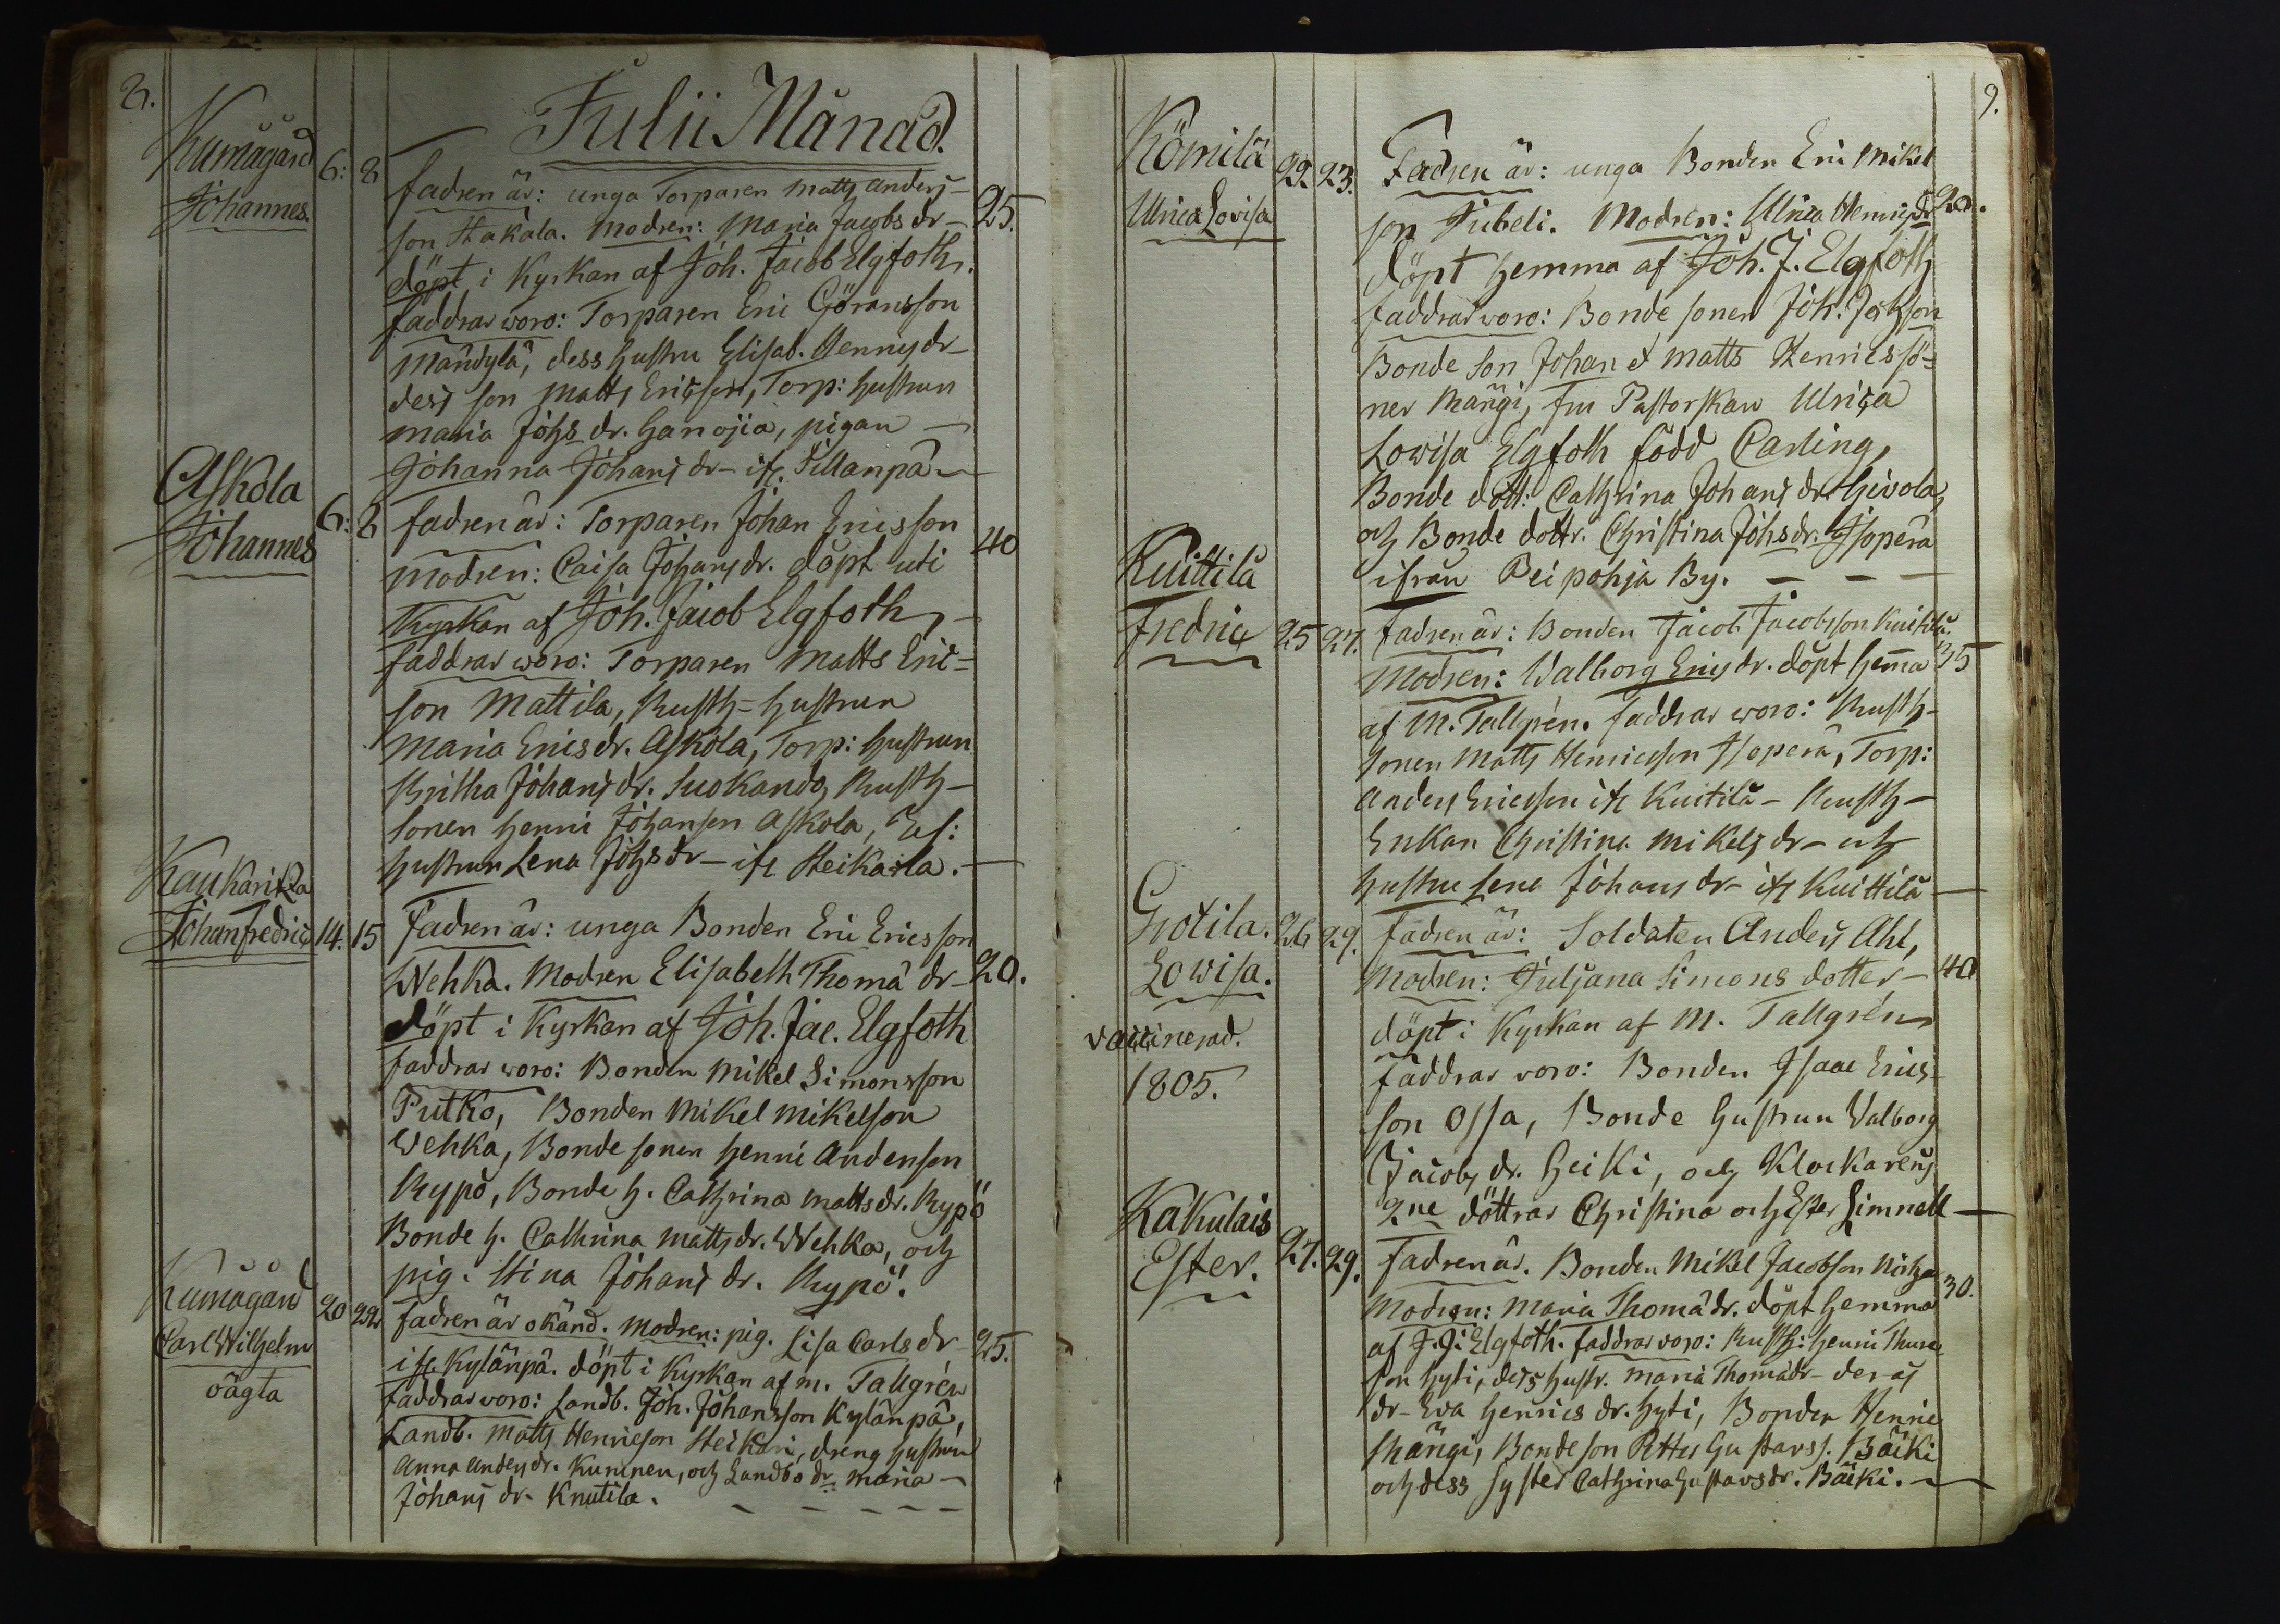 8.
Julii Månad.
Kumogård
Johannes.
6: 8
fadren är: unga Torparen Matts Anders-
son Stakala. Modren: Maria Jacobs dr-
25.
döpt i Kyrkan af Joh. Jacob Elgfoth.
faddrar woro: Torparen Eric Göransson
Mändylä, dess hustru Elisab. Henrics dr-
dess son Matts Ericsson, Torp: hustrun
Maria Johs dr. Hanoja, pigan
Johanna Johans dr- ifr. Sillanpä
Askola
Johannes
6: 8
fadren är: Torparen Johan Ericsson
40
modren: Caisa Johans dr. döpt uti
Kyrkan af Joh. Jacob Elgfoth,
faddrar woro: Torparen Matts Eric=
son Mattila, Rusth=hustrun
Maria Erics dr. Askola, Torp: hustrun
Britha Johans dr. Suokando, Rusth-
sonen Henric Johanson Askola,
hustrun Lena Johs dr- ifr Heikarla.
Kaukaritza
Johan Fredric
14. 15
fadren är: unga Bonden Eric Ericsson
Wehka. Modren Elisabeth Thomä dr-
20.
döpt i Kyrkan af Joh. Jac. Elgfoth
faddrar woro: Bonden Mikel Simonsson
Putko, Bonden Mikel Mikelson
Wehka, Bonde sonen Henric Anderson
Rypö, Bonde h. Cathrina Matts dr. Rypö
Bonde h. Cathrina Matts dr. Wehka, och
pig. Stina Johans dr. Rypö.
Kumogård
Carl Wilhelm
oägta
20 22
fadren är okänd. Modren: pig. Lisa Carls dr
25.
ifr Kylänpä. döpt i Kyrkan af M. Tallgrén
faddrar woro: Landb. Joh. Johansson Kylänpä,
Landb. Matts Henricson Heikari, dreng hustrun
Anna Anders dr. Kuninen, och Landbo dr. Maria
Johans dr. Knutila.
9.
Kömilä
Ulrica Lovisa
22. 23.
Fadren är: unga Bonden Eric Mikel
son Jubeli. Modren: Ulrica Henrics dr
20.
döpt hemma af Joh. J. Elgfoth
faddrar woro: Bonde sonen Joh. Johsson
Bonde son Johan & Matts Henricssö=
ner Mängi, fru Pastorskan Ulrica
Lowisa Elgfoth född Carling,
Bonde dott: Cathrina Johans dr. Hivola,
och Bonde dottr. Christina Johs dr. Isoperä
ifrån Peipohja By.
Kuittilä
Fredric
25 27.
fadren är: Bonden Jacob Jacobsson Kuitilä.
Modren: Walborg Erics dr. döpt hema
35
af M. Tallgrén. faddrar woro: Rusth-
sonen Matts Henricsson Isoperä, Torp:
Anders Ericsson ifr Kuitilä- Rusth-
Enkan Christina Mikels dr- och
hustru Lena Johans dr- ifr Kuittilä
Gotila.
Lowisa.
vaccinerad.
1805.
26 29.
fadren är: Soldaten Anders Ahl,
Modren: Juljana Simons dotter-
40
döpt i Kyrkan af M. Tallgrén
faddrar woro: Bonden Isaac Erics-
son Ossa, Bonde hustrun Valborg
Jacobs dr. Heiki, och Klockarens
2ne döttrar Christina och Ester Limnell
Kakulais
Ester.
27. 29.
fadren är. Bonden Mikel Jacobson
Modren: Maria Thomä dr. döpt hemma
30.
af J. J. Elgfoth. faddrar woro: Rusth: Henric Thure
son Hyti, dess hustr. Maria Thomä dr- deras
dr- Eva Henrics dr. Hyti, Bonden Henric
Mängi, Bonde son Petter Gustavss. Bäcki
och dess syster Cathrina Gustavs dr. Bäcki.